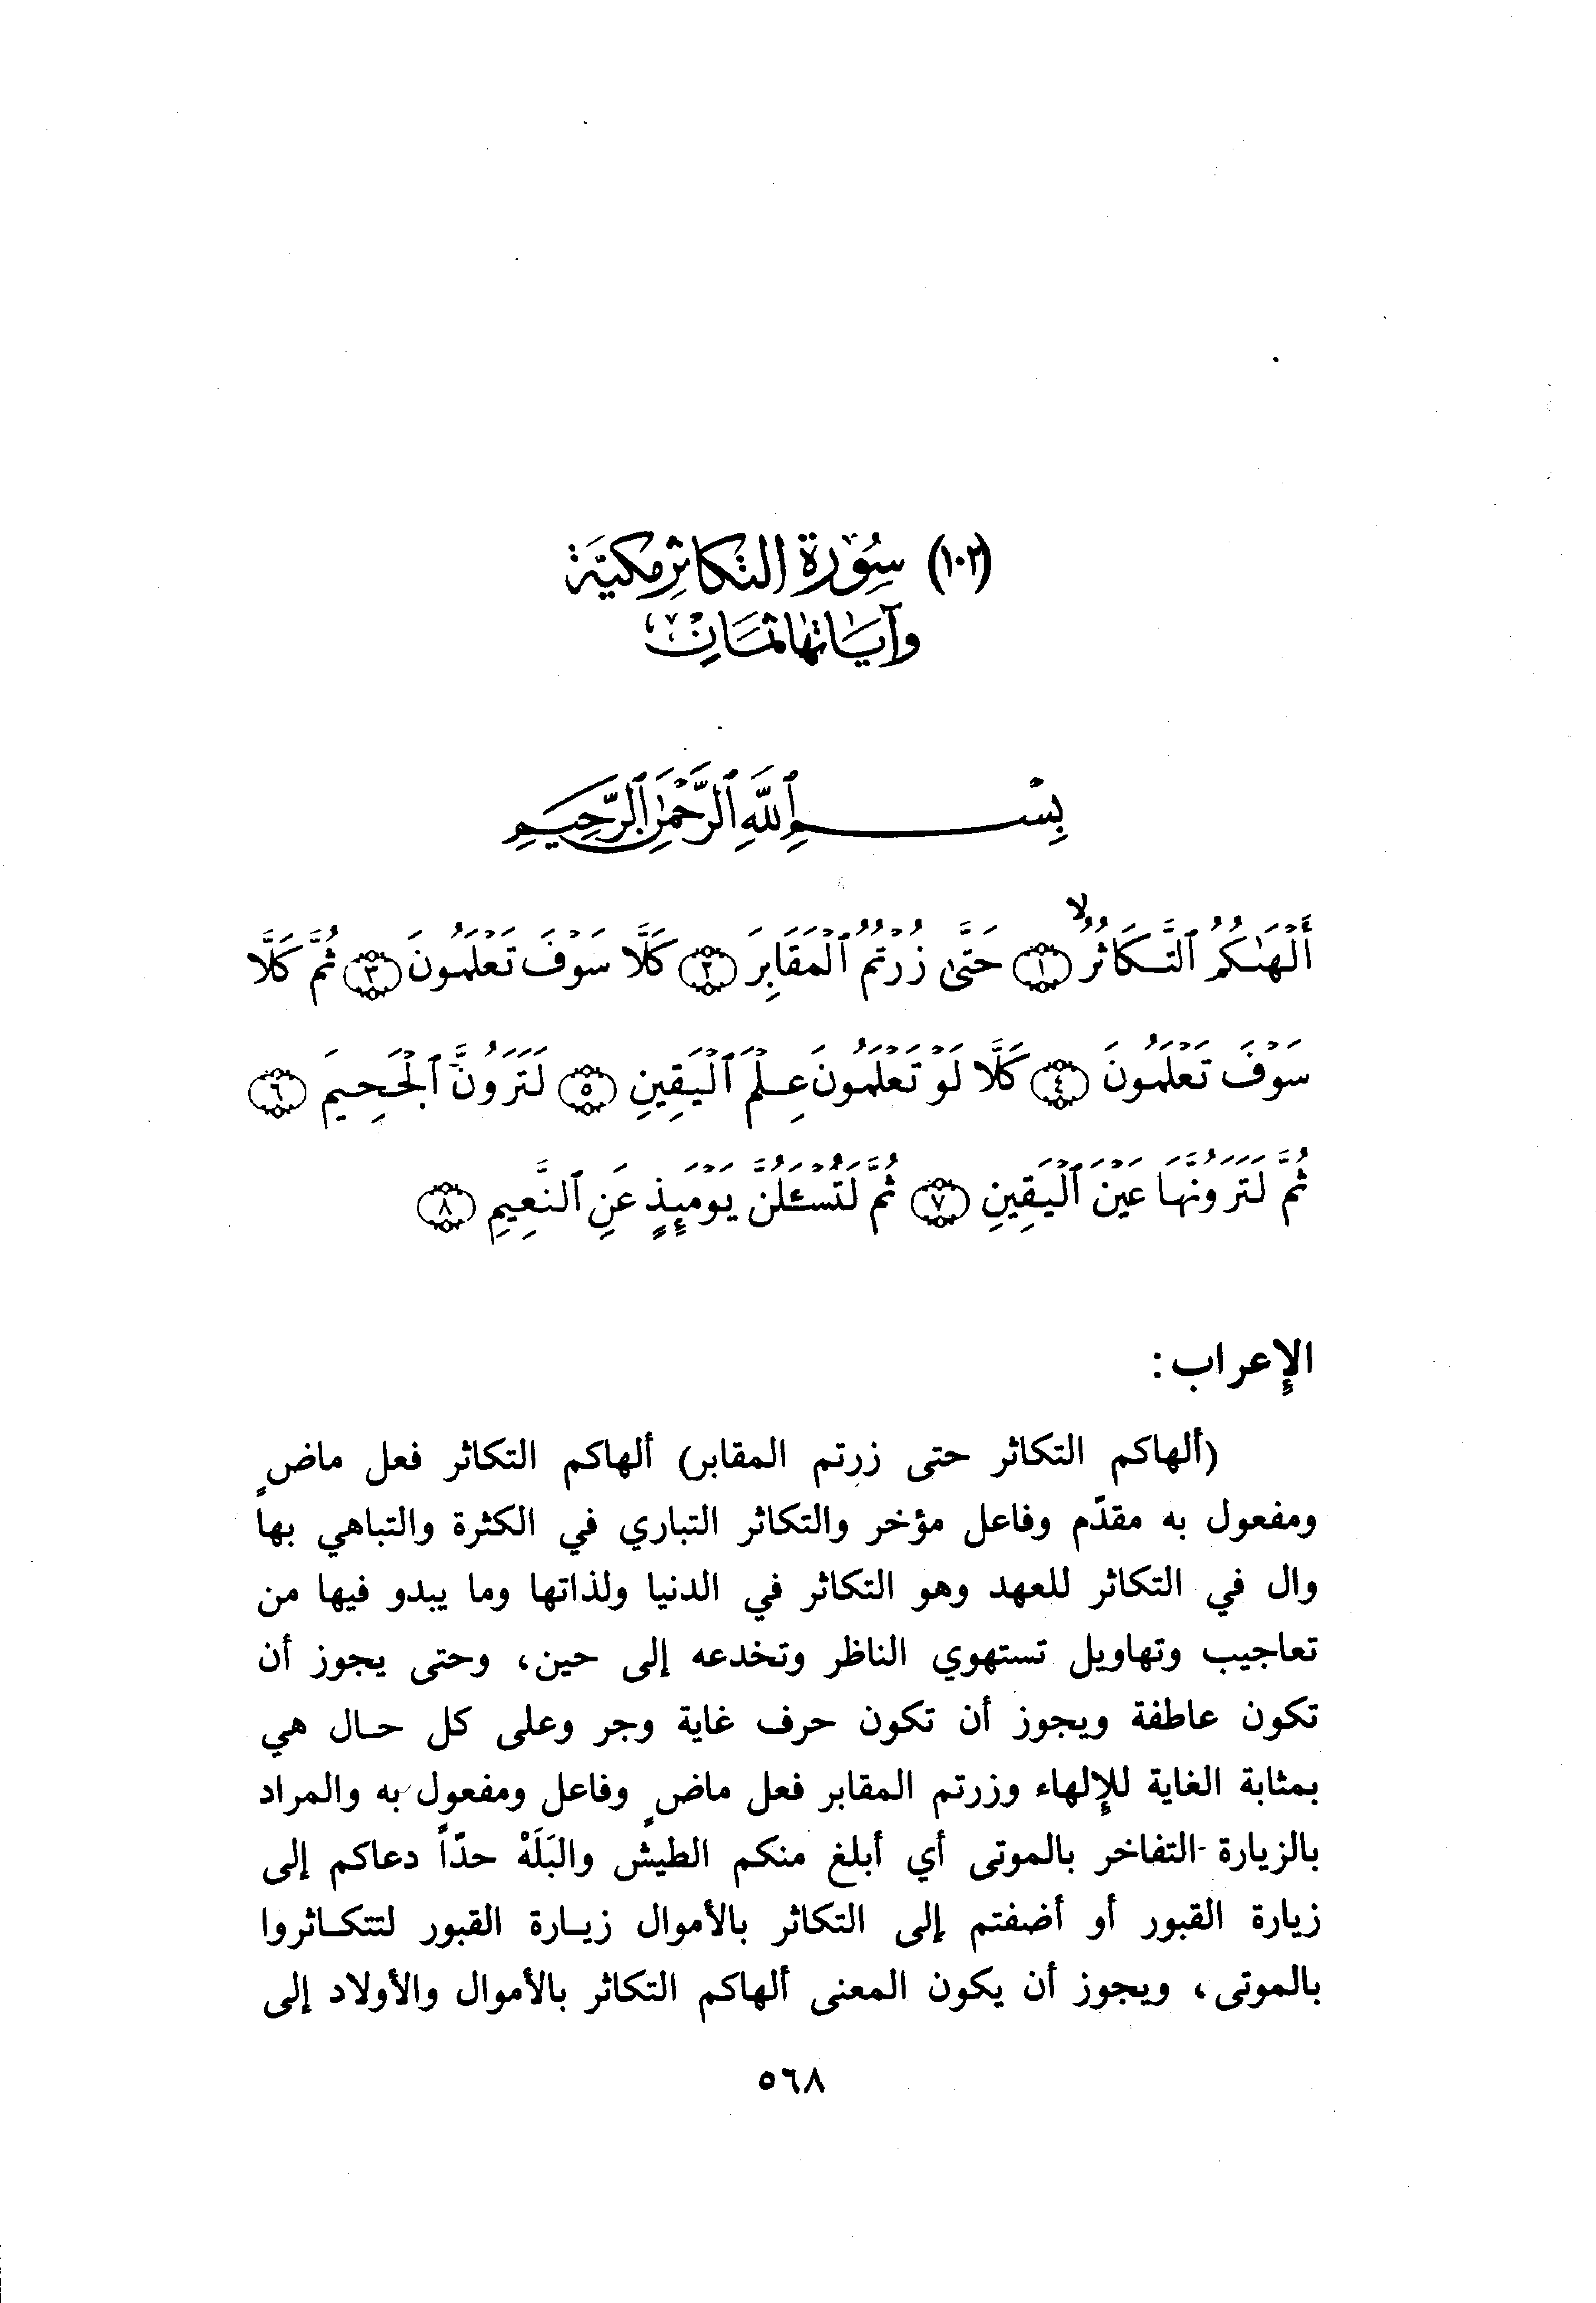 (١٠٢) سُورَة التكاثِر مكيَّة
وآيَاتها ثمَانٍ
بِسْمِ ٱللَّهِ ٱلرَّحْمَٰنِ ٱلرَّحِيمِ
أَلْهَىٰكُمُ ٱلتَّكَاثُرُ ۙ ﴿١﴾ حَتَّىٰ زُرْتُمُ ٱلْمَقَابِرَ ﴿٢﴾ كَلَّا سَوْفَ تَعْلَمُونَ ﴿٣﴾ ثُمَّ كَلَّا
سَوْفَ تَعْلَمُونَ ﴿٤﴾ كَلَّا لَوْ تَعْلَمُونَ عِلْمَ ٱلْيَقِينِ ﴿٥﴾ لَتَرَوُنَّ ٱلْجَحِيمَ ﴿٦﴾
ثُمَّ لَتَرَوُنَّهَا عَيْنَ ٱلْيَقِينِ ﴿٧﴾ ثُمَّ لَتُسْـَٔلُنَّ يَوْمَئِذٍ عَنِ ٱلنَّعِيمِ ﴿٨﴾
الإعراب :
(ألهاكم التكاثر حتى زرتم المقابر) ألهاكم التكاثر فعل ماضٍ
ومفعول به مقدّم وفاعل مؤخر والتكاثر التباري في الكثرة والتباهي بها
وال في التكاثر للعهد وهو التكاثر في الدنيا ولذاتها وما يبدو فيها من
تعاجيب وتهاويل تستهوي الناظر وتخدعه إلى حين، وحتى يجوز أن
تكون عاطفة ويجوز أن تكون حرف غاية وجر وعلى كل حـال هي
بمثابة الغاية للإلهاء وزرتم المقابر فعل ماضٍ وفاعل ومفعول به والمراد
بالزيارة التفاخر بالموتى أي أبلغ منكم الطيش والبَلَهْ حدّاً دعاكم إلى
زيارة القبور أو أضفتم إلى التكاثر بالأموال زيـارة القبور لتتكـاثروا
بالموتى، ويجوز أن يكون المعنى ألهاكم التكاثر بالأموال والأولاد إلى
٥٦٨